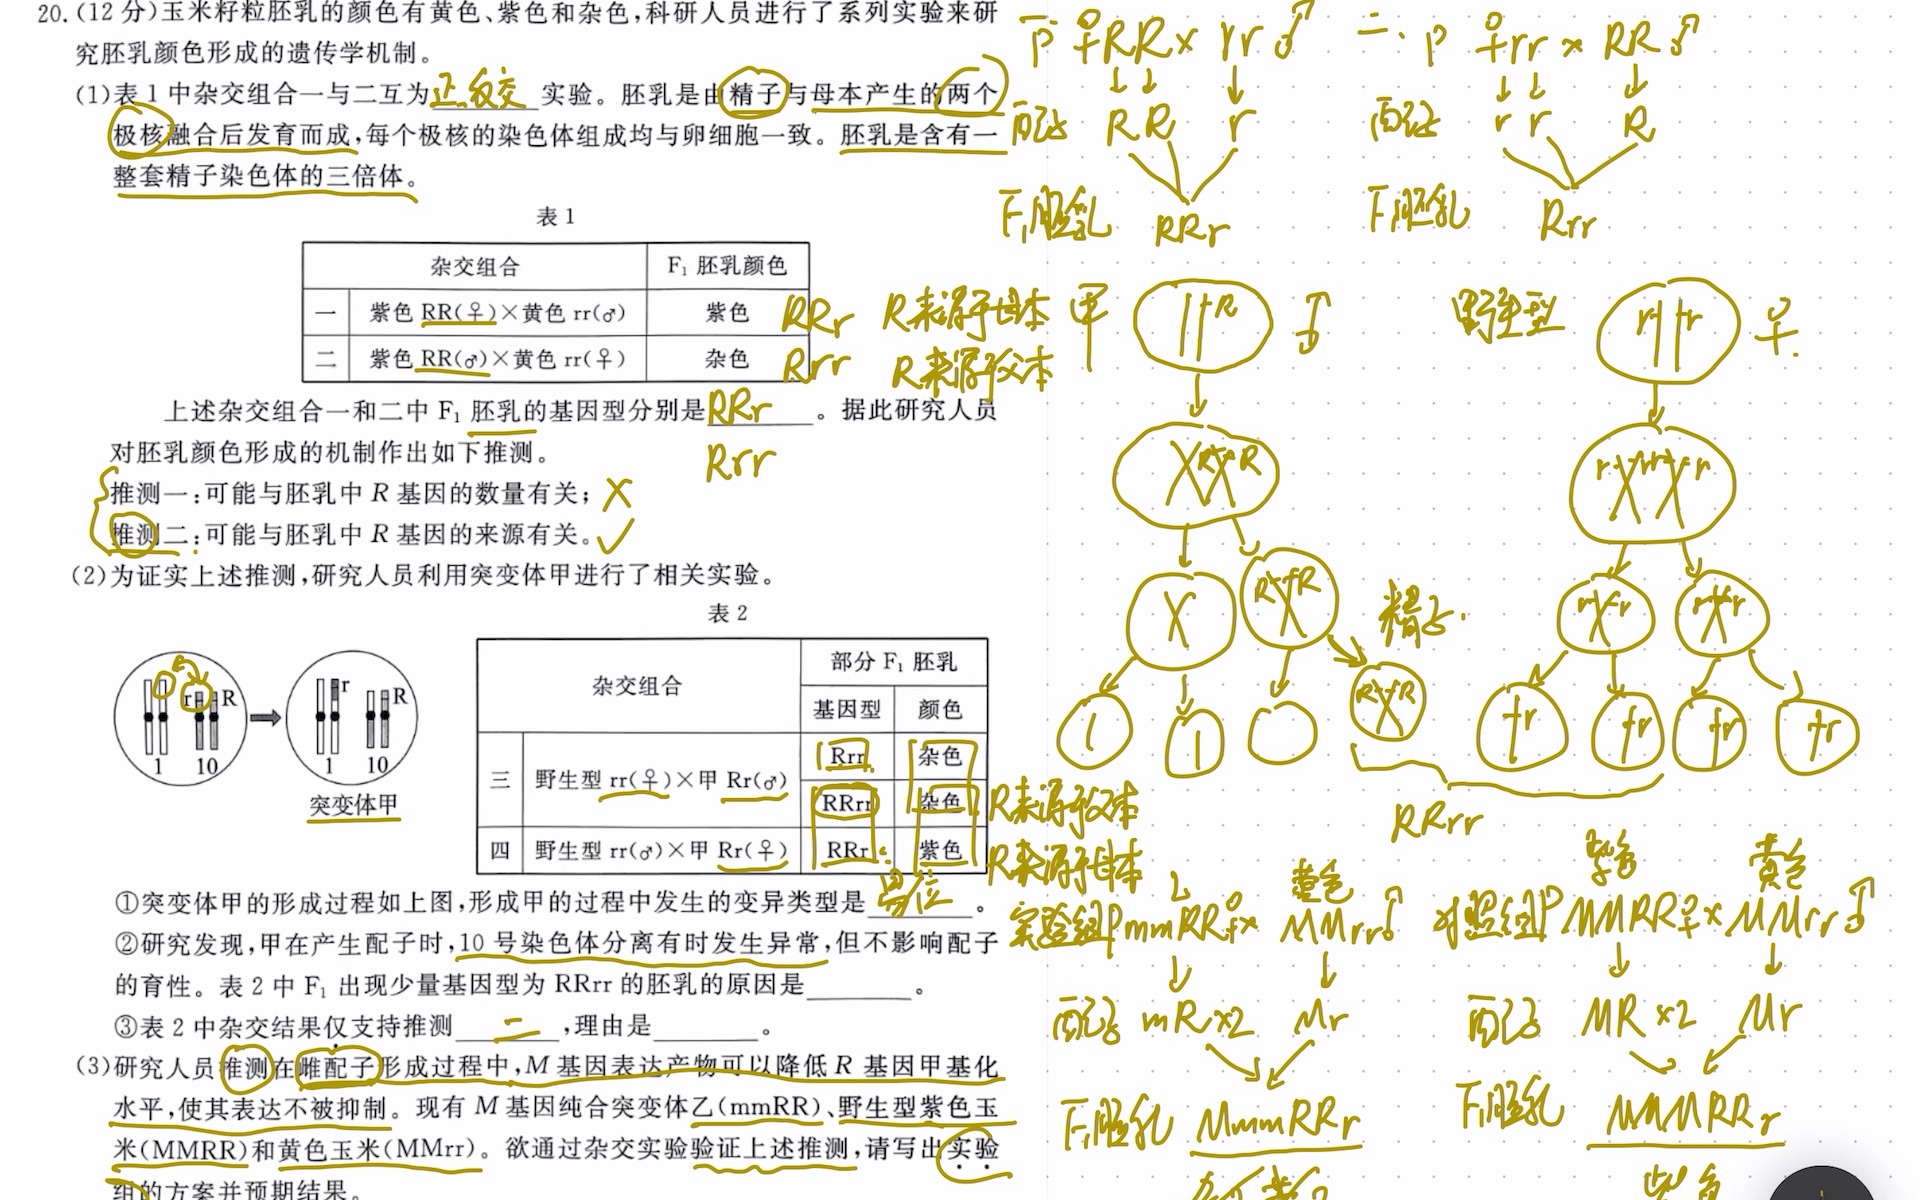 20.(12分)玉米籽粒胚乳的颜色有黄色、紫色和杂色,科研人员进行了系列实验来研
究胚乳颜色形成的遗传学机制。
(1)表1中杂交组合一与二互为正反交实验。胚乳是由精子与母本产生的两个
极核融合后发育而成,每个极核的染色体组成均与卵细胞一致。胚乳是含有一
整套精子染色体的三倍体。
表1
杂交组合 F₁ 胚乳颜色
一 紫色 RR(♀)×黄色 rr(♂) 紫色 RRr R来源于母本
二 紫色 RR(♂)×黄色 rr(♀) 杂色 Rrr R来源于父本
上述杂交组合一和二中 F₁ 胚乳的基因型分别是RRr。据此研究人员
Rrr
对胚乳颜色形成的机制作出如下推测。
推测一:可能与胚乳中 R 基因的数量有关; ×
推测二:可能与胚乳中 R 基因的来源有关。✓
(2)为证实上述推测,研究人员利用突变体甲进行了相关实验。
表2
r R r R
1 10 1 10
突变体甲
杂交组合 部分 F₁ 胚乳
基因型 颜色
三 野生型 rr(♀)×甲 Rr(♂) Rrr 杂色
RRrr 杂色 R来源于父本
四 野生型 rr(♂)×甲 Rr(♀) RRr 紫色 R来源于母本
①突变体甲的形成过程如上图,形成甲的过程中发生的变异类型是易位。
②研究发现,甲在产生配子时,10 号染色体分离有时发生异常,但不影响配子
的育性。表2中 F₁ 出现少量基因型为 RRrr 的胚乳的原因是________。
③表2中杂交结果仅支持推测二,理由是________。
(3)研究人员推测在雌配子形成过程中,M 基因表达产物可以降低 R 基因甲基化
水平,使其表达不被抑制。现有 M 基因纯合突变体乙(mmRR)、野生型紫色玉
米(MMRR)和黄色玉米(MMrr)。欲通过杂交实验验证上述推测,请写出实验
组的方案并预期结果。
P ♀RR × rr♂
配子 R R r
F₁胚乳 RRr
二、P ♀rr × RR♂
配子 r r R
F₁胚乳 Rrr
甲 R ♂
R R
R R
精子
R R
野生型 r r ♀
r r r r
r r r r
r r r r
RRrr
黄色
实验组P mmRR♀× MMrr♂
配子 mR×2 Mr
F₁胚乳 MmmRRr
紫色 黄色
对照组P MMRR♀× MMrr♂
配子 MR×2 Mr
F₁胚乳 MMMRRr
紫色